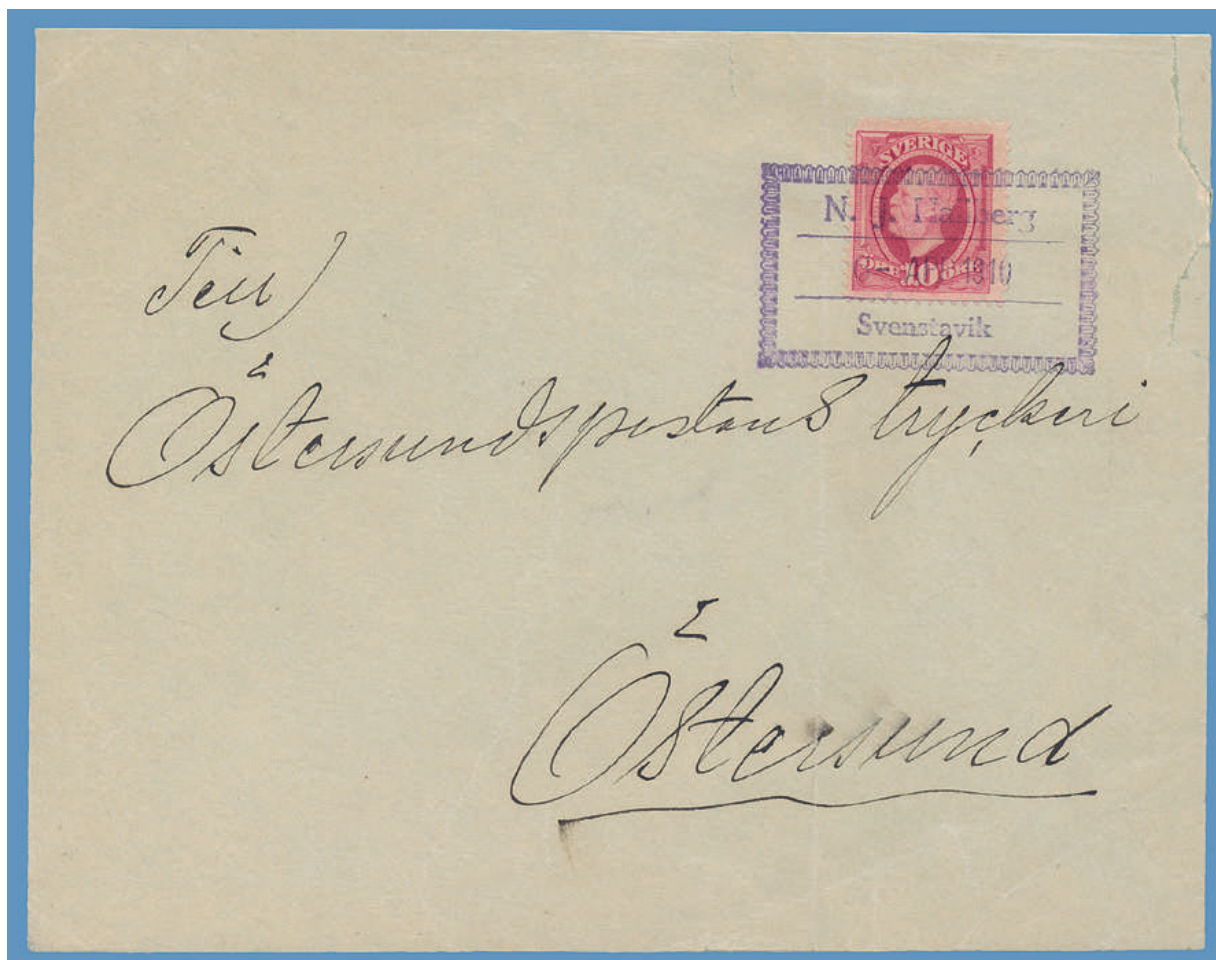 SVERIGE
N. J. Hallberg
ÖRE 10 ÖRE
APR 1910
Svenstavik
Till
Östersundspostens tryckeri
Östersund